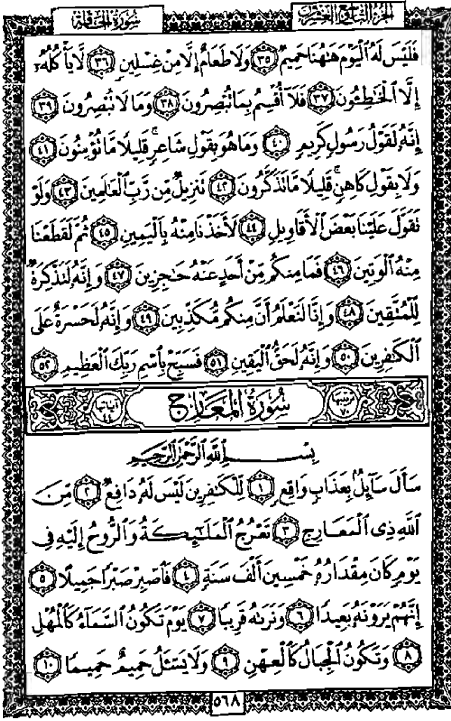 سُورَةُ الْحَاقَّةِ الجُزْءُ التَّاسِعُ وَالعِشْرُونَ
فَلَيْسَ لَهُ الْيَوْمَ هَاهُنَا حَمِيمٌ ٣٥ وَلَا طَعَامٌ إِلَّا مِنْ غِسْلِينٍ ٣٦ لَا يَأْكُلُهُ
إِلَّا الْخَاطِئُونَ ٣٧ فَلَا أُقْسِمُ بِمَا تُبْصِرُونَ ٣٨ وَمَا لَا تُبْصِرُونَ ٣٩
إِنَّهُ لَقَوْلُ رَسُولٍ كَرِيمٍ ٤٠ وَمَا هُوَ بِقَوْلِ شَاعِرٍ قَلِيلًا مَّا تُؤْمِنُونَ ٤١
وَلَا بِقَوْلِ كَاهِنٍ قَلِيلًا مَّا تَذَكَّرُونَ ٤٢ تَنزِيلٌ مِّن رَّبِّ الْعَالَمِينَ ٤٣ وَلَوْ
تَقَوَّلَ عَلَيْنَا بَعْضَ الْأَقَاوِيلِ ٤٤ لَأَخَذْنَا مِنْهُ بِالْيَمِينِ ٤٥ ثُمَّ لَقَطَعْنَا
مِنْهُ الْوَتِينَ ٤٦ فَمَا مِنكُم مِّنْ أَحَدٍ عَنْهُ حَاجِزِينَ ٤٧ وَإِنَّهُ لَتَذْكِرَةٌ
لِّلْمُتَّقِينَ ٤٨ وَإِنَّا لَنَعْلَمُ أَنَّ مِنكُم مُّكَذِّبِينَ ٤٩ وَإِنَّهُ لَحَسْرَةٌ عَلَى
الْكَافِرِينَ ٥٠ وَإِنَّهُ لَحَقُّ الْيَقِينِ ٥١ فَسَبِّحْ بِاسْمِ رَبِّكَ الْعَظِيمِ ٥٢
سُورَةُ الْمَعَارِجِ
بِسْمِ اللَّهِ الرَّحْمَٰنِ الرَّحِيمِ
سَأَلَ سَائِلٌ بِعَذَابٍ وَاقِعٍ ١ لِّلْكَافِرِينَ لَيْسَ لَهُ دَافِعٌ ٢ مِّنَ
اللَّهِ ذِي الْمَعَارِجِ ٣ تَعْرُجُ الْمَلَائِكَةُ وَالرُّوحُ إِلَيْهِ فِي
يَوْمٍ كَانَ مِقْدَارُهُ خَمْسِينَ أَلْفَ سَنَةٍ ٤ فَاصْبِرْ صَبْرًا جَمِيلًا ٥
إِنَّهُمْ يَرَوْنَهُ بَعِيدًا ٦ وَنَرَاهُ قَرِيبًا ٧ يَوْمَ تَكُونُ السَّمَاءُ كَالْمُهْلِ
٨ وَتَكُونُ الْجِبَالُ كَالْعِهْنِ ٩ وَلَا يَسْأَلُ حَمِيمٌ حَمِيمًا ١٠
٥٦٨